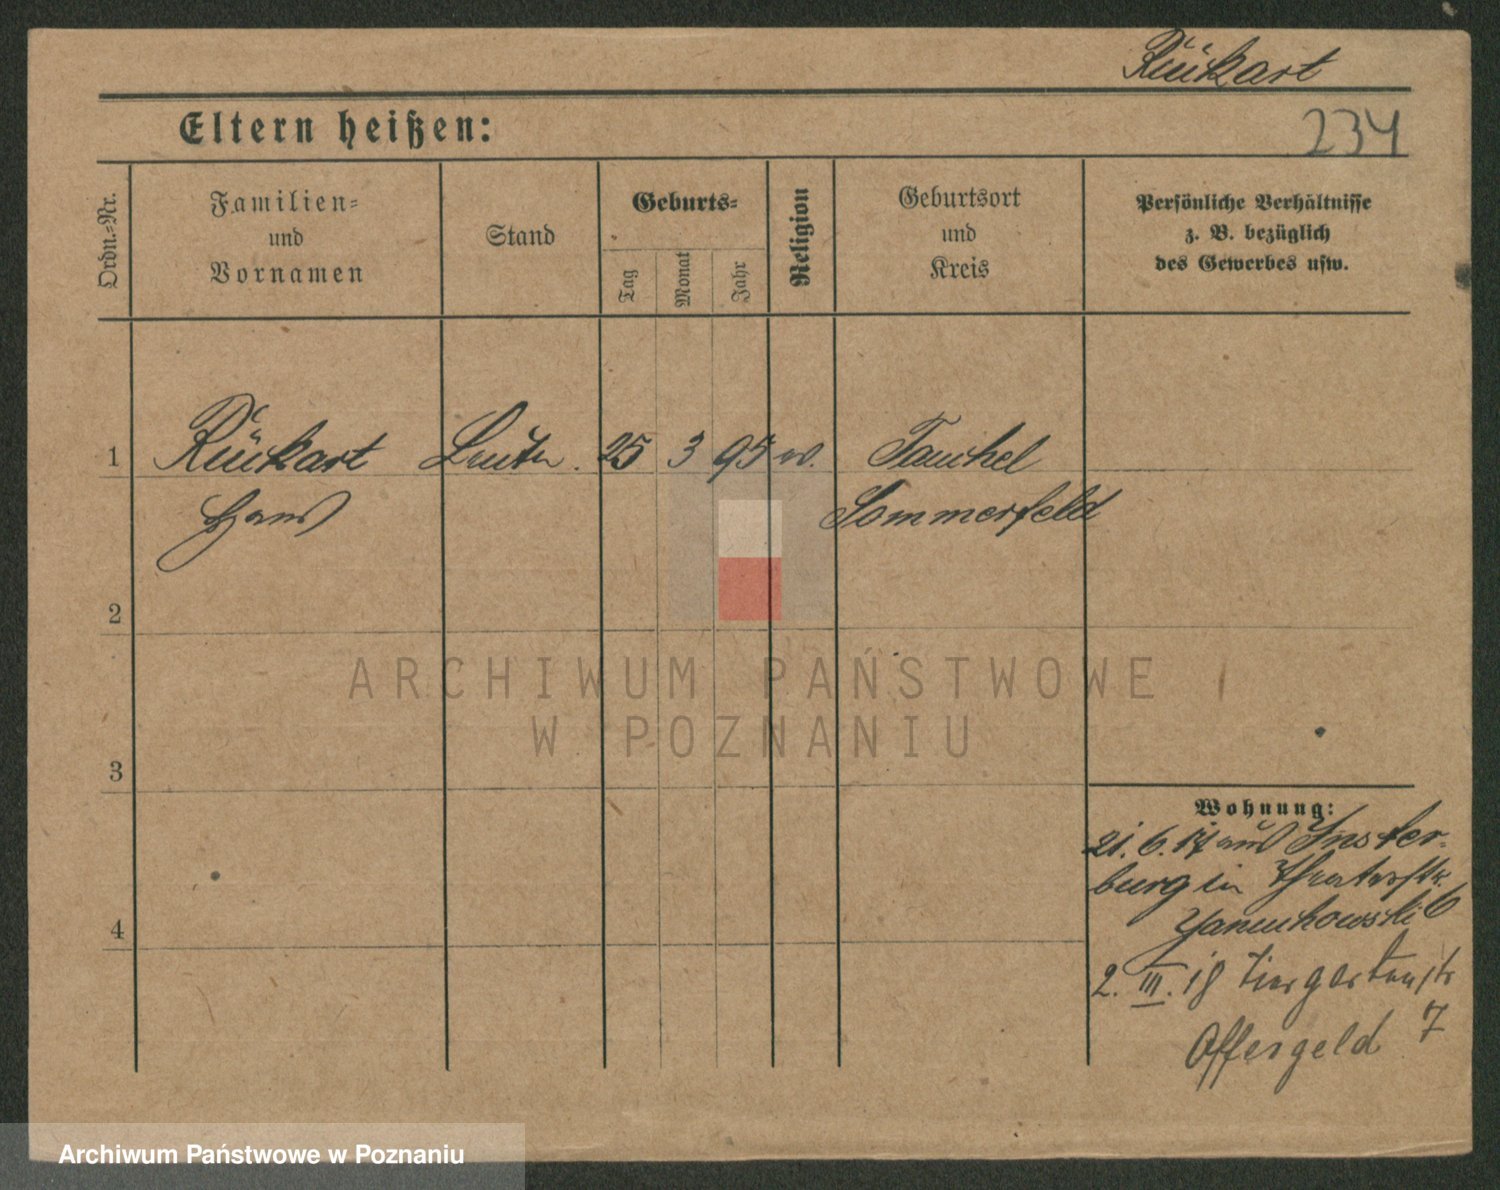 Rückart
Eltern heißen:
234
Ordn.-Nr.
Familien-
und
Vornamen
Stand
Geburts-
Tag
Monat
Jahr
Religion
Geburtsort
und
Kreis
Persönliche Verhältnisse
z. B. bezüglich
des Gewerbes usw.
1
Rückart
Hans
25
3
95
ev.
Sommerfeld
2
ARCHIWUM PAŃSTWOWE
W POZNANIU
3
Wohnung:
21. 6. 17 aus Inster-
burg in Theaterstr.
6
4
2. III. 18 Tiergartenstr
7
Offergeld
Archiwum Państwowe w Poznaniu